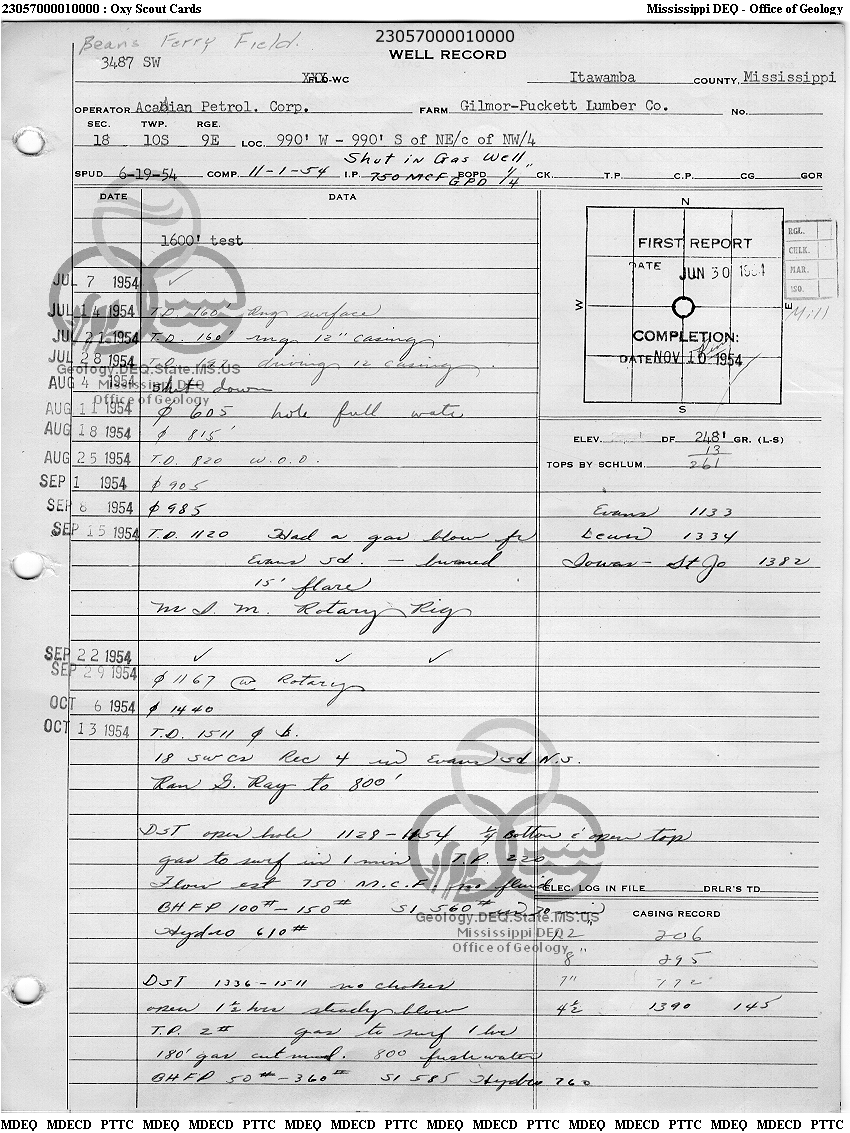 23057000010000 : Oxy Scout Cards Mississippi DEQ - Office of Geology
Beans Ferry Field.
23057000010000
WELL RECORD
3487 SW
XXX FLD-WC Itawamba COUNTY, Mississippi
OPERATOR Acadian Petrol. Corp. FARM Gilmor-Puckett Lumber Co. No.
SEC. TWP. RGE.
18 10S 9E LOC. 990' W - 990' S of NE/c of NW/4
Shut in Gas Well
SPUD 6-19-54 COMP. 11-1-54 I.P. 750 MCF GPD BOPD 1/4" CK. T.P. C.P. CG GOR
DATE DATA
1600' test
JUL 7 1954 ✓
JUL 14 1954 T.D. 160' surface
JUL 21 1954 T.D. 160' rng 12" casing
JUL 28 1954 T.D. 197 driving 12 casing.
AUG 4 1954 Shut down
AUG 11 1954 φ 605 hole full wate
AUG 18 1954 φ 815'
AUG 25 1954 T.D. 820 W.O.O.
SEP 1 1954 φ 905
SEP 8 1954 φ 985
SEP 15 1954 T.D. 1120 Had a gas blow fr
Evans sd. - burned
15' flare
M I M. Rotary Rig
SEP 22 1954 ✓ ✓ ✓
SEP 29 1954 φ 1167 @ Rotary
OCT 6 1954 φ 1440
OCT 13 1954 T.D. 1511 φ
18 SWCS Rec 4 in Evans sd N.S.
Ran G. Ray to 800'
DST open hole 1128-1154 1/4 Botton & open top
gas to surf in 1 min T.P. 220
Flow est 750 M.C.F. no fluid
BHFP 100# - 150# SI 560# in 30 min
Hydro 610#
DST 1336-1511 no chokes
open 1 1/2 hrs steady blow
T.P. 2# gas to surf 1 hr
180' gas cut mud. 800 fresh water
BHFP 50# - 360# SI 585 Hydro 760
N
W
E
S
FIRST REPORT
DATE JUN 30 1954
COMPLETION:
DATE NOV 10 1954
RGL.
CHLK.
MAR.
ISO.
Mill
ELEV. DF. 248' GR. (L-S)
13
TOPS BY SCHLUM. 261
Evans 1133
Lewis 1334
Iowas - St Jo 1382
ELEC. LOG IN FILE DRLR'S TD
CASING RECORD
12" 206
8" 295
7" 772
4 1/2 1390 145
Geology.DEQ.State.MS.US
Mississippi DEQ
Office of Geology
Geology.DEQ.State.MS.US
Mississippi DEQ
Office of Geology
MDEQ MDECD PTTC MDEQ MDECD PTTC MDEQ MDECD PTTC MDEQ MDECD PTTC MDEQ MDECD PTTC MDEQ MDECD PTTC